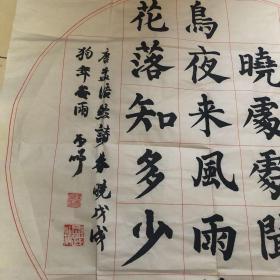 晓處處聞
鳥夜来風雨
花落知多少
唐孟浩然詩春晓戊戌
狗年谷雨